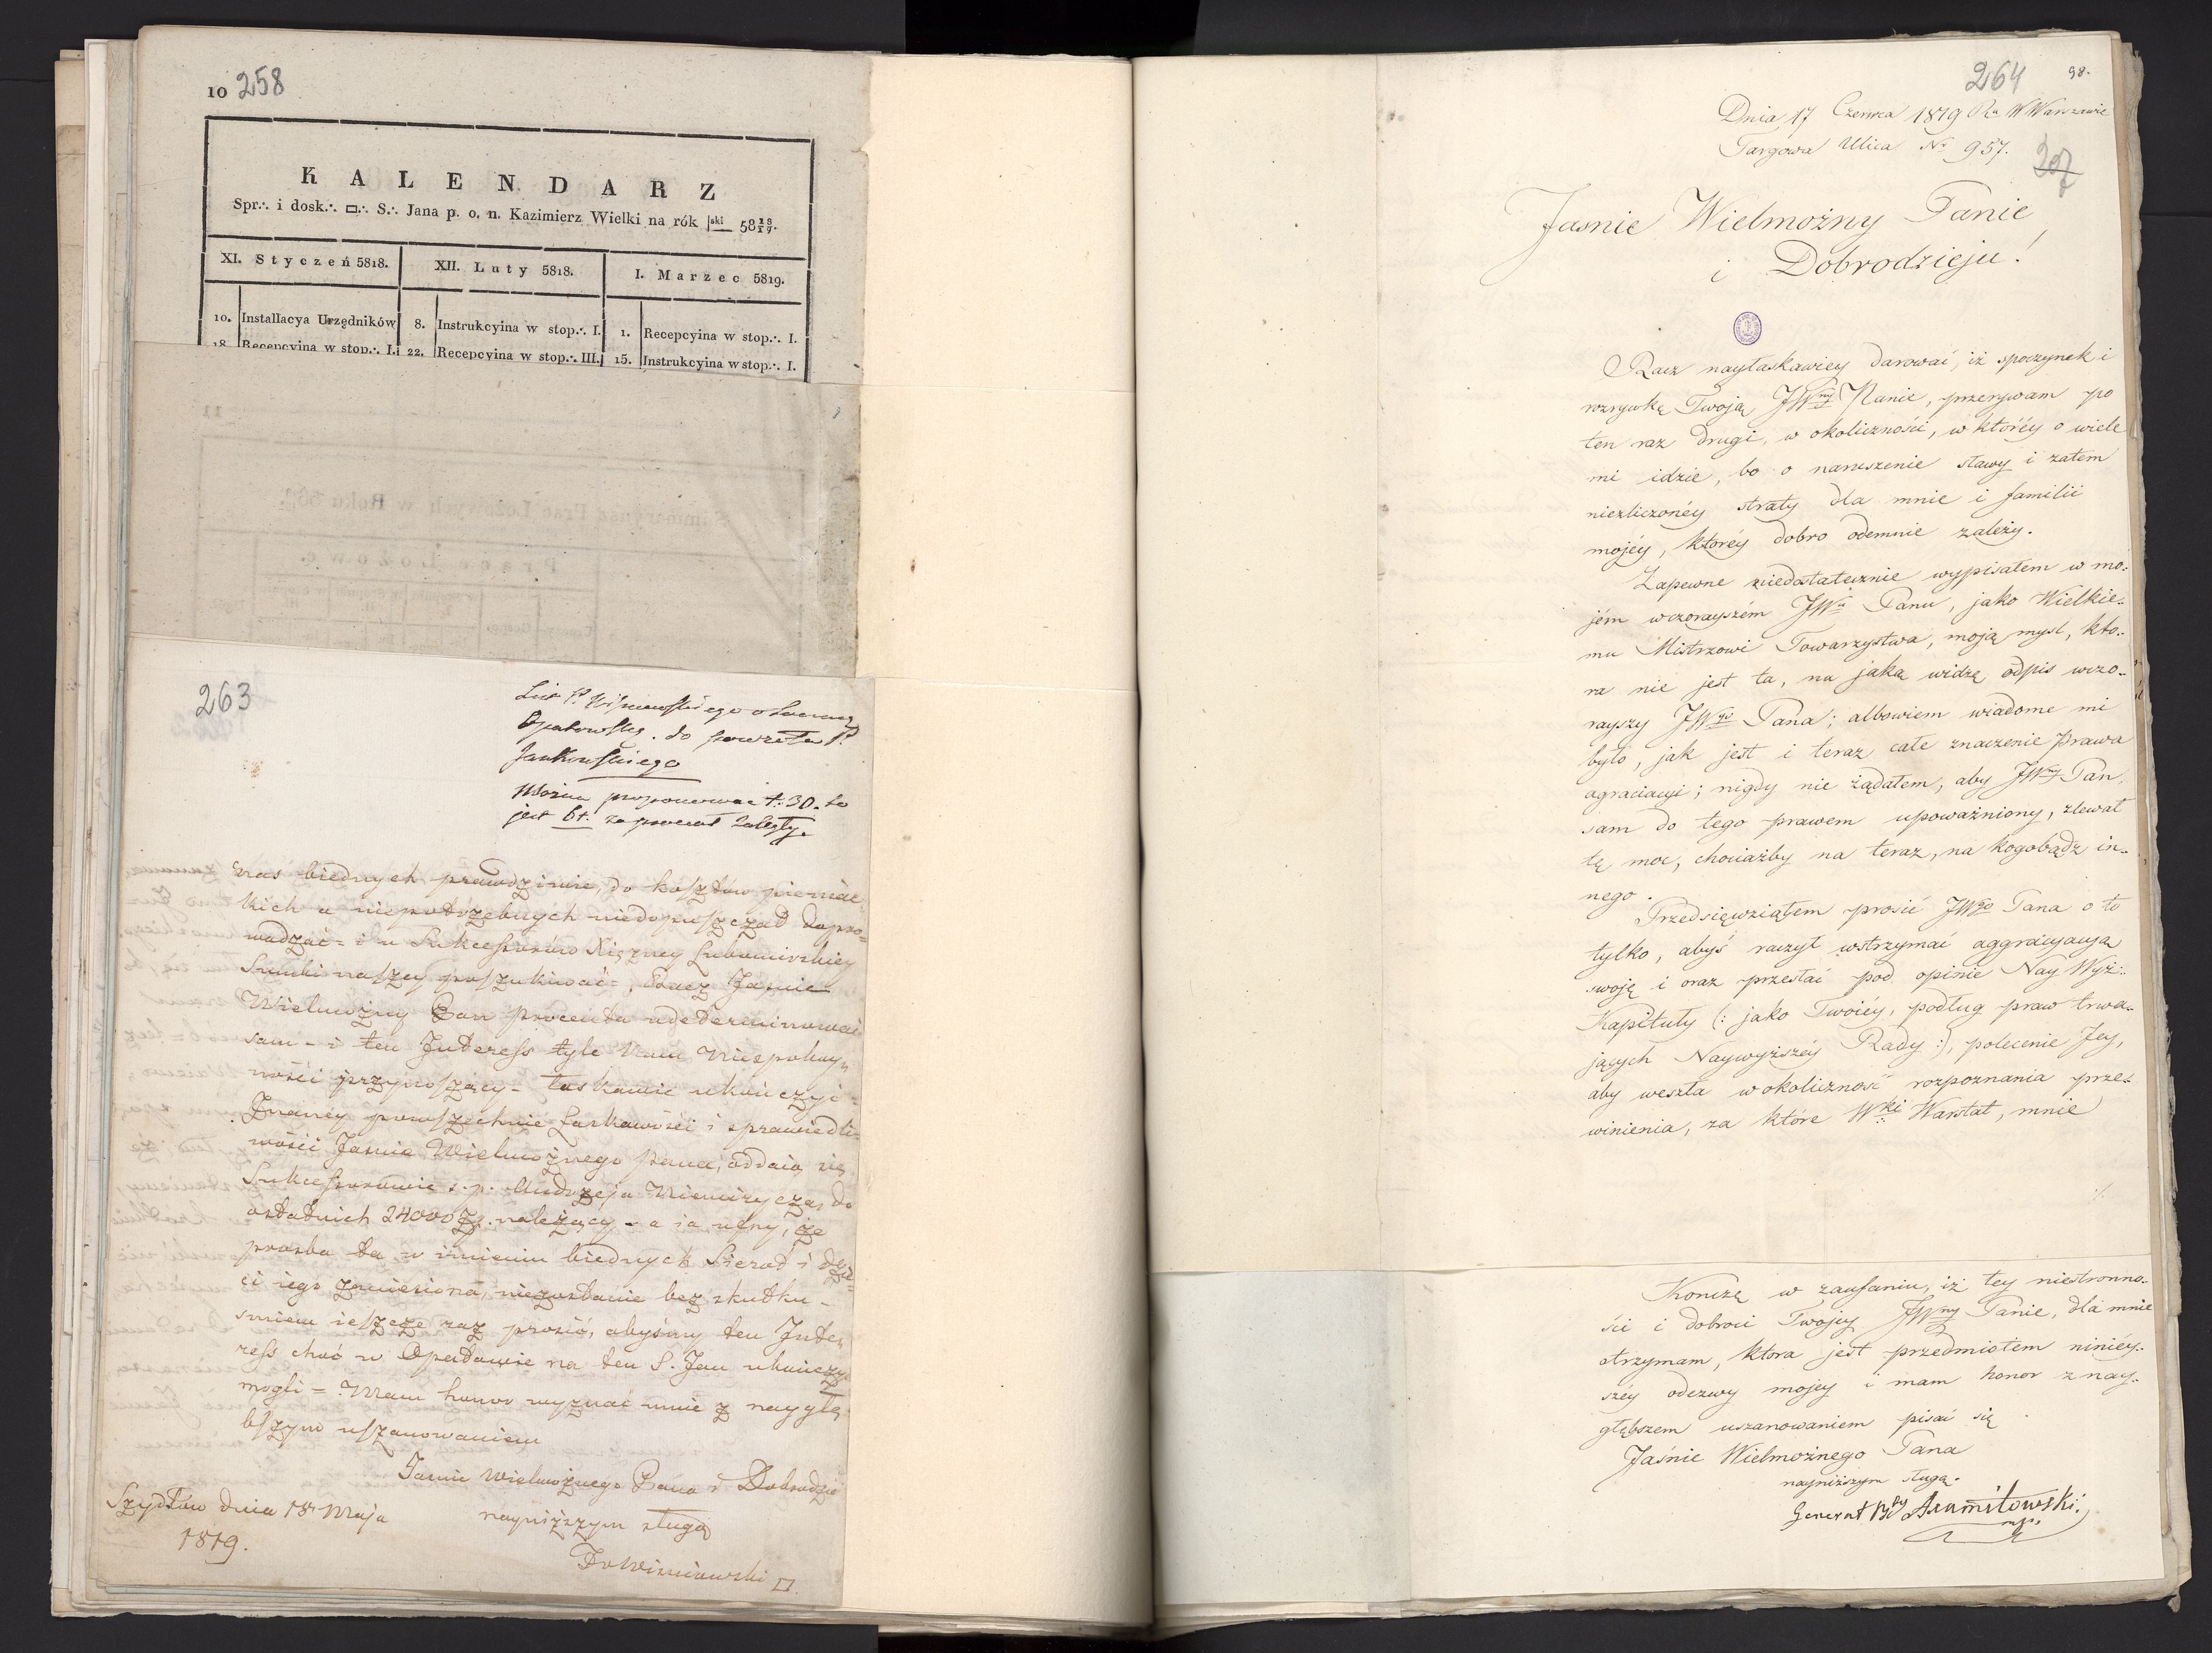 10 258
KALENDARZ
Spr∴ i dosk∴ ▭∴ S∴ Jana p. o. n. Kazimierz Wielki na rók |ski 58 18/19.
XI. Styczeń 5818. XII. Luty 5818. I. Marzec 5819.
10. Installacya Urzędników 8. Instrukcyina w stop∴ I. 1. Recepcyina w stop∴ I.
18. Recepcyina w stop∴ I. 22. Recepcyina w stop∴ III. 15. Instrukcyina w stop∴ I.
263
List P. Wiśniewskiego o Summę
Opatowską. do powrotu P.
Jankowskiego
Można proponować t: 30. to
jest 6t: za procent zaległy.
nas biednych prawdziwie, do kosztów pieniac„
kich a niepotrzebnych niedopuszczał dopro=
wadzać = i u Sukcessorów Xiężney Lubomirskiey
Summki naszey poszukiwać =, Racz Jasnie
Wielmożny Pan procenta udeterminować
sam – i ten Interess tyle Nam Niespokoy„
ności przynoszący – łaskawie ukończyć =
Znaney powszechnie Łaskawości i sprawiedli=
wości Jasnie Wielmożnego Pana, oddaią się
Sukcessorowie s. p. Andrzeja Niemirycza, do
ostatnich 24000 Zł. należący – a ia ufny, że
prosba ta w imieniu biednych Sierod i dzie=
ci iego zaniesiona, niezostanie bez skutku –
smiem ieszcze raz prosić, abyśmy ten Inte„
ress choć w Opatowie na ten S. Jan ukończyć
mogli = Mam honor wyznać mnie z naygłę„
bszym uszanowaniem
Jasnie Wielmożnego Pana i Dobrodzie
nayniższym sługą
Szydłów dnia 18 Maja
1819.
Wiśniewski
264 98.
Dnia 17 Czerwca 1819 Ru W Warszawie
Targowa Ulica Nr 957.
307
Jasnie Wielmożny Panie
i Dobrodzieju!
Racz nayłaskawiey darować, iż spoczynek i
rozrywkę Twoją JWny Panie, przerywam po
ten raz drugi, w okoliczności, w któréy o wiele
mi idzie, bo o naruszenie sławy i zatem
niezliczonéy straty dla mnie i familii
mojéy, któréy dobro odemnie zależy.
Zapewne niedostatecznie wypisałem w mo„
jém wczorayszém JWu Panu, jako Wielkie„
mu Mistrzowi Towarzystwa, moją mysl, kto„
ra nie jest ta, na jaką widzę odpis wczo„
rayszy JWgo Pana; albowiem wiadome mi
było, jak jest i teraz całe znaczenie Prawa
agraciacyi; nigdy nie żądałem, aby JWny Pan,
sam do tego prawem upoważniony, zlewał
tę moc, chociażby na teraz, na kogobądz in„
nego.
Przedsięwziąłem prosić JWgo Pana o to
tylko, abyś raczył wstrzymać aggracyacyą
swoję i oraz przesłać pod opinie Nay Wyż:
Kapituły (: jako Twoiéy, podług praw trwa„
jących Naywyższéy Rady :), polecenie Jey,
aby weszła w okoliczność rozpoznania prze„
winienia, za które Wki Warstat, mnie
./.
Konczę w zaufaniu, iż tey niestronno„
ści i dobroci Twojey JWny Panie, dla mnie
otrzymam, ktora jest przedmiotem niniéy„
széy odezwy mojey i mam honor z nay„
głębszem uszanowaniem pisać się
Jaśnie Wielmożnego Pana
nayniższym sługą.
Generał